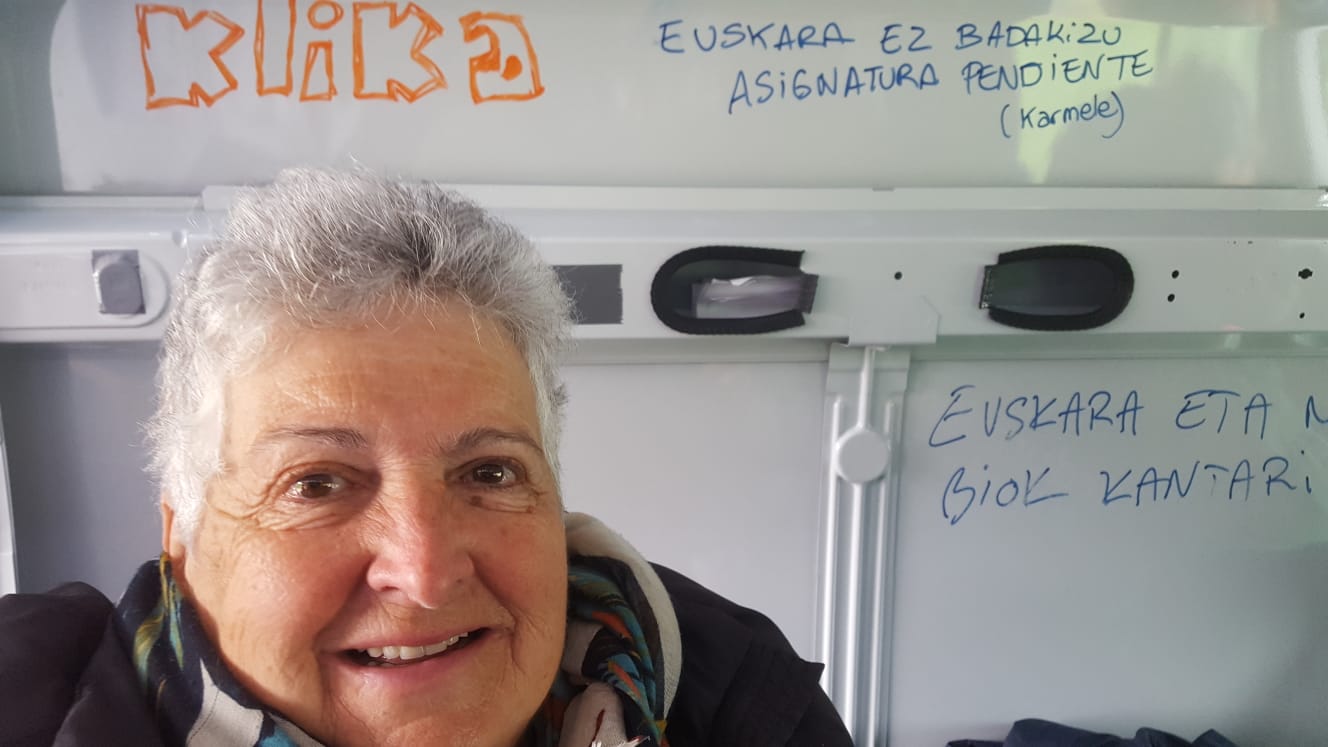 KLiKa
EUSKARA EZ BADAKiZU
ASiGNATURA PENDiENTE
(Karmele)
EUSKARA ETA
BiOK KANTARi